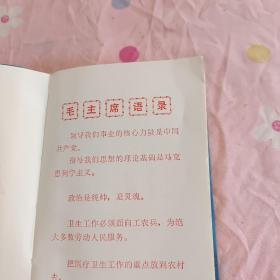 毛主席语录
领导我们事业的核心力量是中国
共产党。
指导我们思想的理论基础是马克
思列宁主义。
政治是统帅，是灵魂。
卫生工作必须面向工农兵，为绝
大多数劳动人民服务。
把医疗卫生工作的重点放到农村
去。